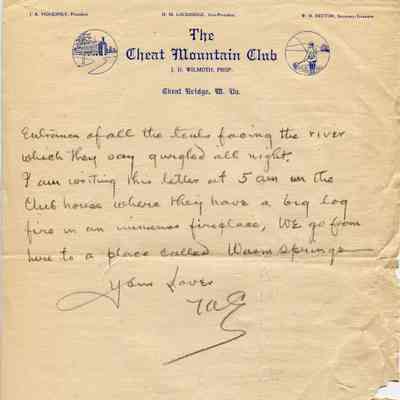 President Vice-President Secretary-Treasurer
The
Cheat Mountain Club
J. H. WILMOTH, PROP.
Cheat Bridge, W. Va.
Entrances of all the tents facing the river
which they say gurgled all night.
I am writing this letter at 5 am in the
Club house where they have a big log
fire in an immense fireplace, We go from
here to a place called Warm Springs
Your Lover
TAE